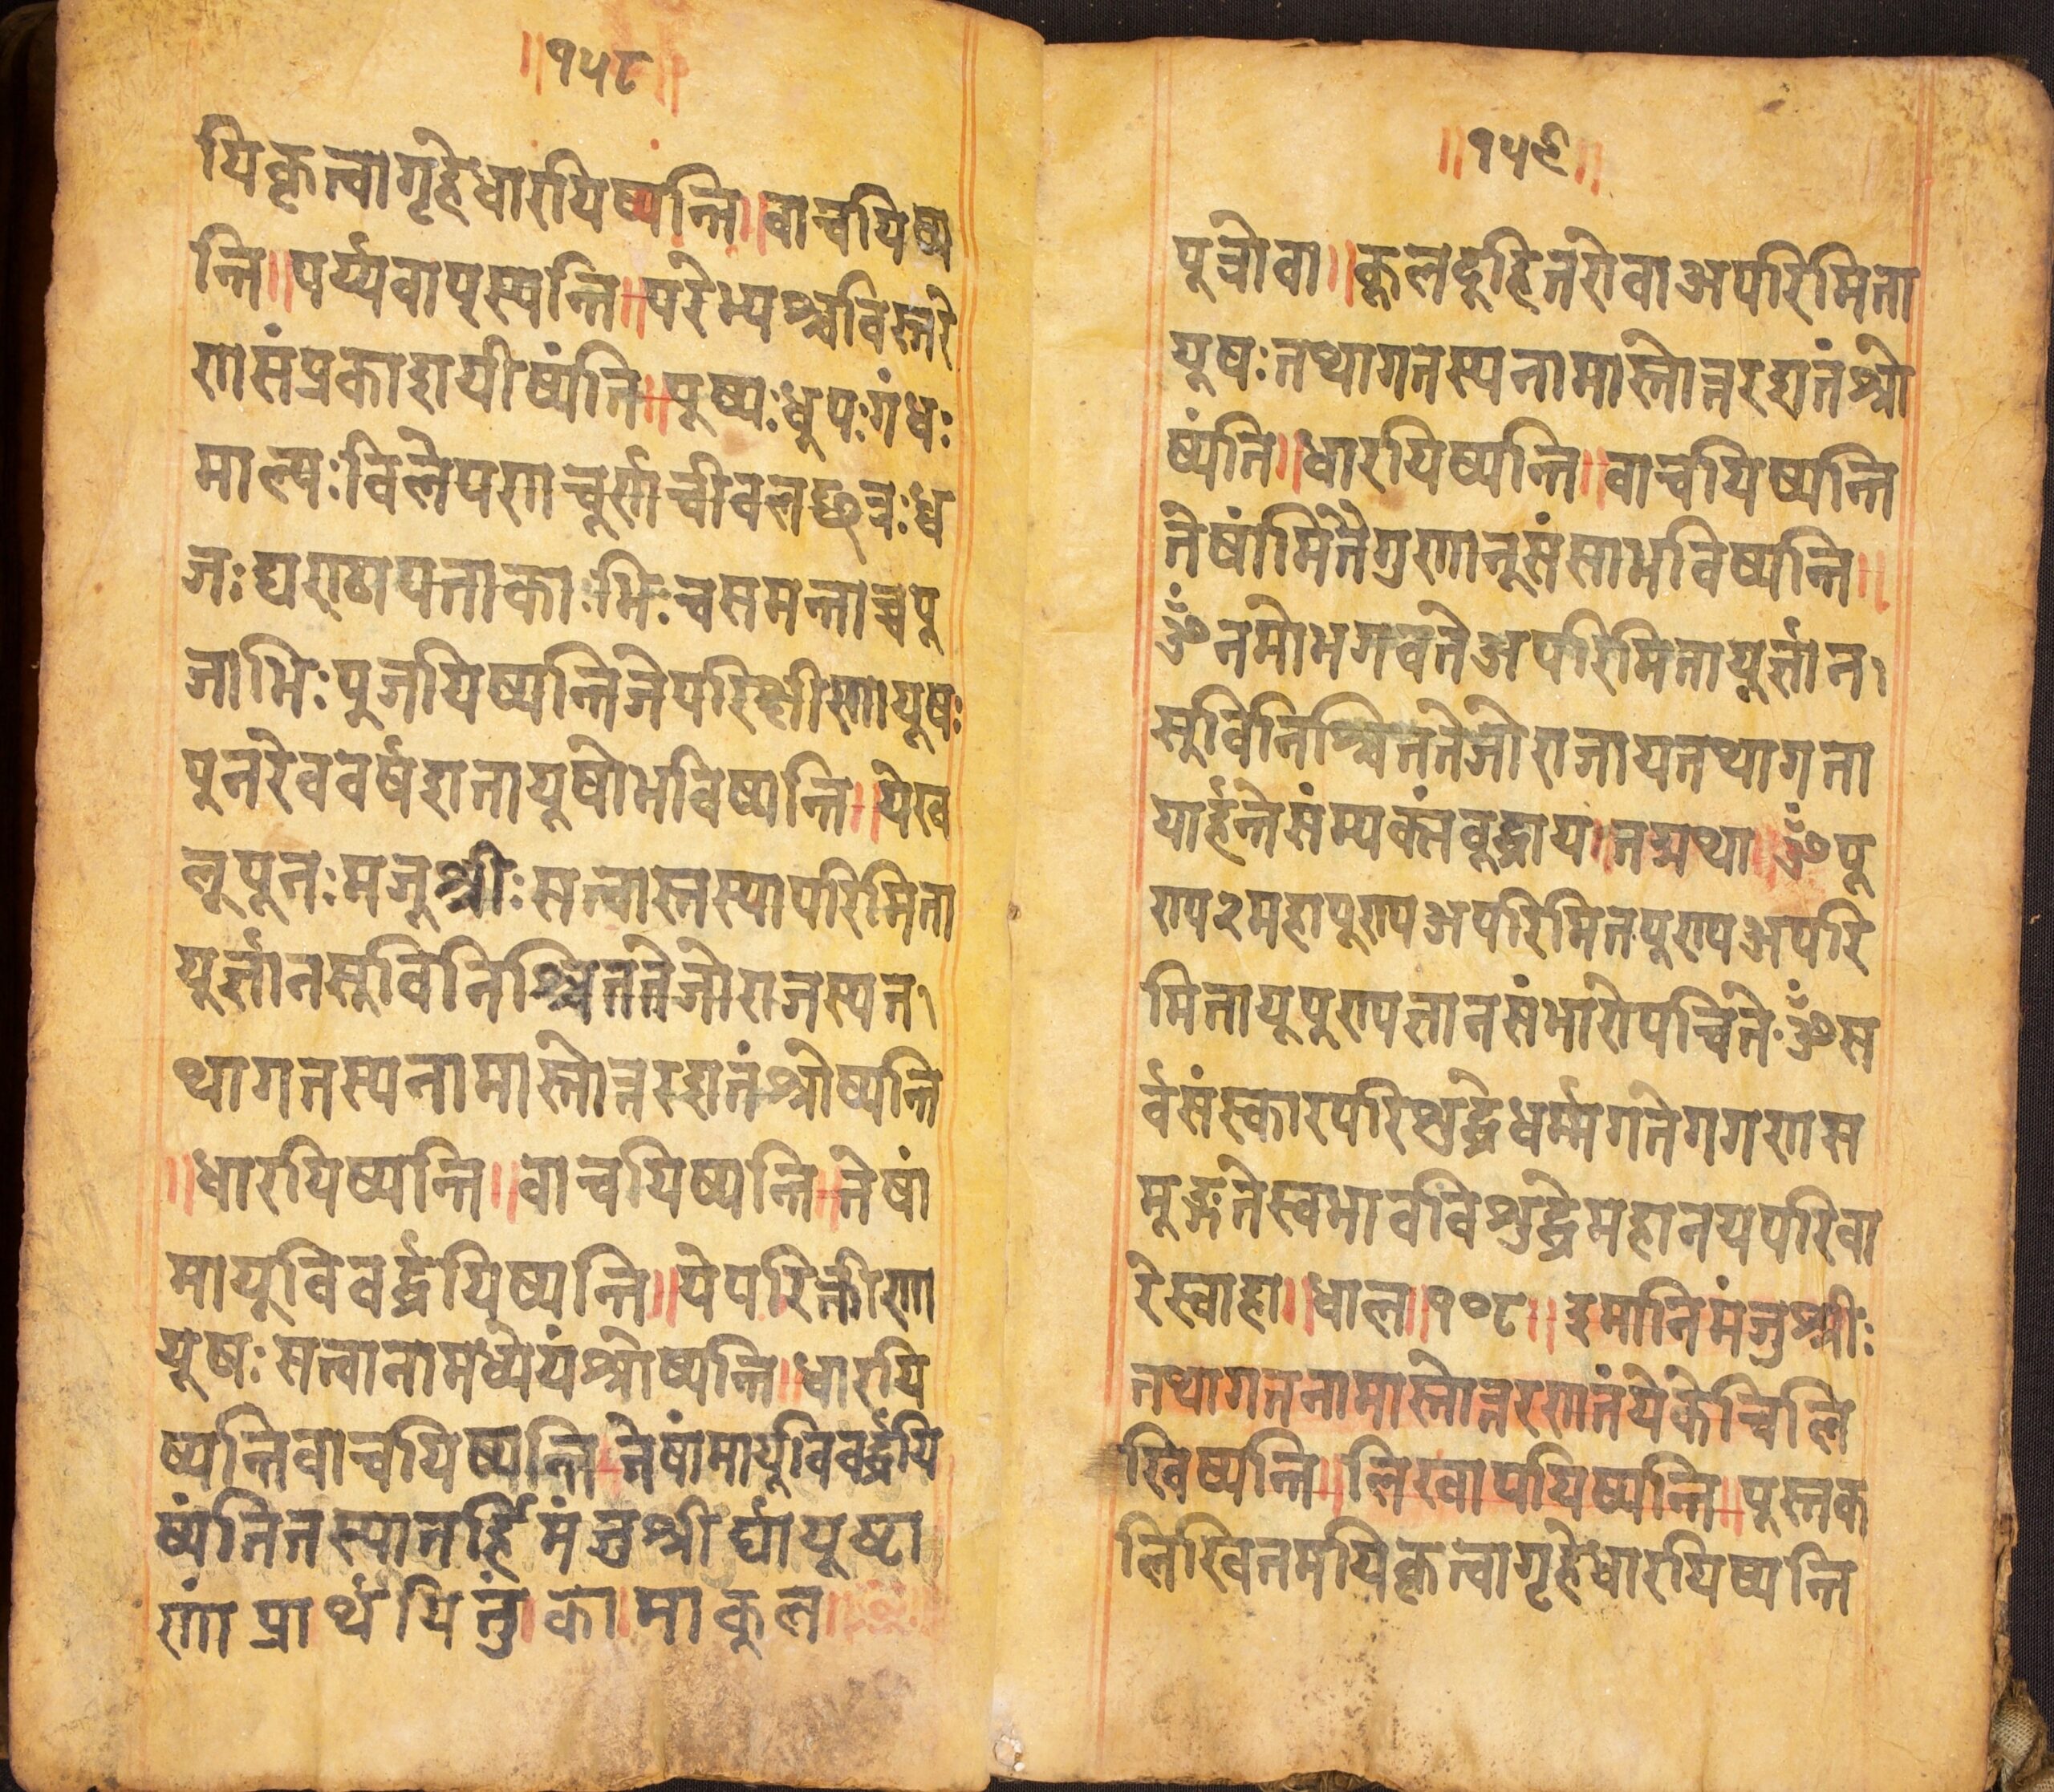 ॥१५८॥
यिकृत्वागृहेधारयिष्यन्ति॥वाचयिष्य
न्ति॥पर्य्यवाप्स्यन्ति॥परेभ्यश्चविस्तरे
णसंप्रकाशयीष्यंति॥पूष्पःधुपःगंधः
माल्यःविलेपणचूर्णचीवलछत्रःध्व
जःघण्ठापताकाःभिःचसमन्ताच्चपू
जाभिःपुजयिष्यन्तिजेपरिक्षीणायूषः
पुनरेववर्षशतायूषोभविष्यन्ति॥येख
लूपूनःमजूश्रीःसत्वास्तस्यापरिमिता
यूर्ज्ञानसूविनिश्चिततेजोराजस्यत१
थागतस्यनामास्तोत्तरशतंश्रोष्यन्ति
॥धारयिष्यन्ति॥वाचयिष्यन्ति॥तेषां
मायूविवर्द्धयिष्यन्ति॥येपरिक्षीणा
यूषःसत्वानामध्येयंश्रोष्यन्ति॥धारयि
ष्यन्तिवाचयिष्यन्ति॥तेषांमायूविवर्द्धयि
ष्यंतितस्यातर्हिमंजुश्रीर्घायूष्टा
णंप्रार्थयितुं।का।माकुल॥
॥१५९॥
पूत्रोवा॥कूलदूहितरोवाअपरिमिता
यूषःतथागतस्यनामास्तोत्तरशतंश्रो
ष्यंति॥धारयिष्यन्ति॥वाचयिष्यन्ति
तेषांमितैगुणानूसंसाभविष्यन्ति॥
ॐनमोभगवतेअपरिमितायूर्ज्ञान१
सूविनिश्चिततेजोराजायतथागता
यार्हन्तेसंम्यक्संवूद्धाय।तद्यथा॥ॐपू
ण्य२महापूण्यअपरिमितपूण्यअपरि
मितायूपूण्यज्ञानसंभारोपचितेॐस
र्वसंस्कारपरिशुद्धेधर्म्मगतेगगणस
मूङ्गतेस्वभावविशुद्धेमहानयपरिवा
रेस्वाहा॥धाल॥१०८॥इमानिमंजुश्रीः
तथागतनामास्तोत्तरशतंयेकेचिलि
खिष्यन्ति॥लिखापयिष्यन्ति॥पूस्तक
लिखितमयिकृत्वागृहेधारयिष्यन्ति